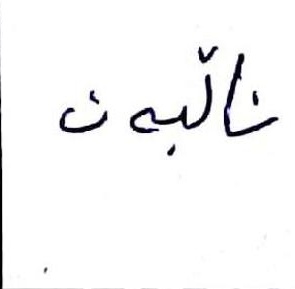 ناڵبەن